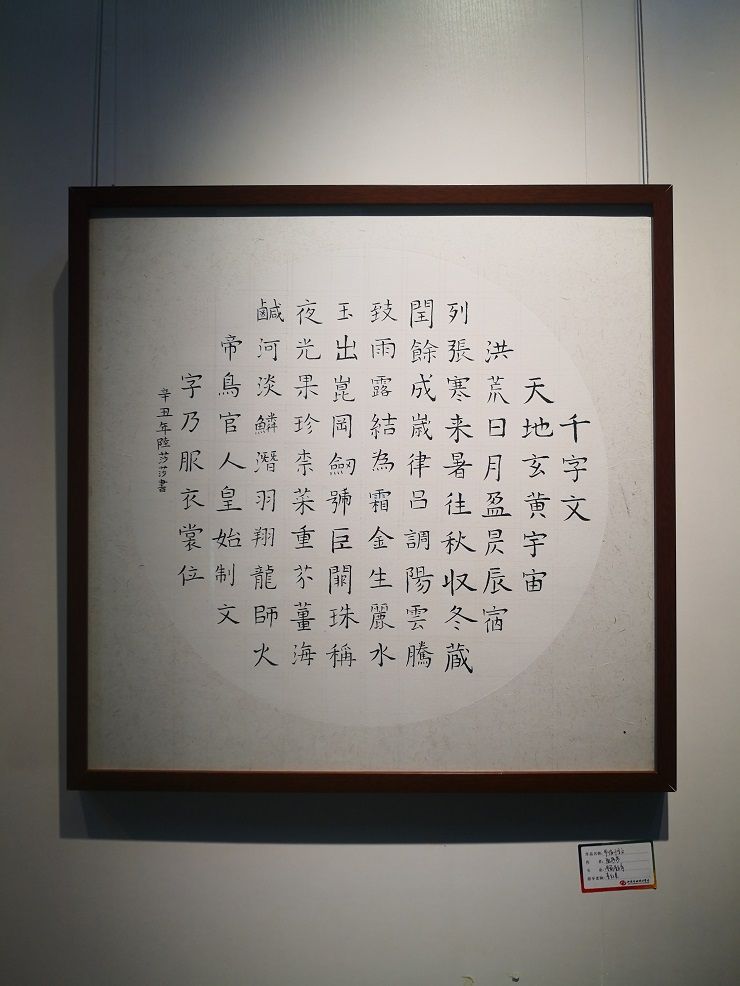 千字文
天地玄黄宇宙
洪荒日月盈昃辰宿
列張寒来暑往秋収冬蔵
閏餘成歲律呂調陽雲騰
致雨露結為霜金生麗水
玉出崑岡劒號巨闕珠稱
夜光果珍柰菜重芥薑海
鹹河淡鱗潛羽翔龍師火
帝鳥官人皇始制文
字乃服衣裳位
辛丑年陸莎莎書
作品名称:
姓 名:
专 业:
指导老师: